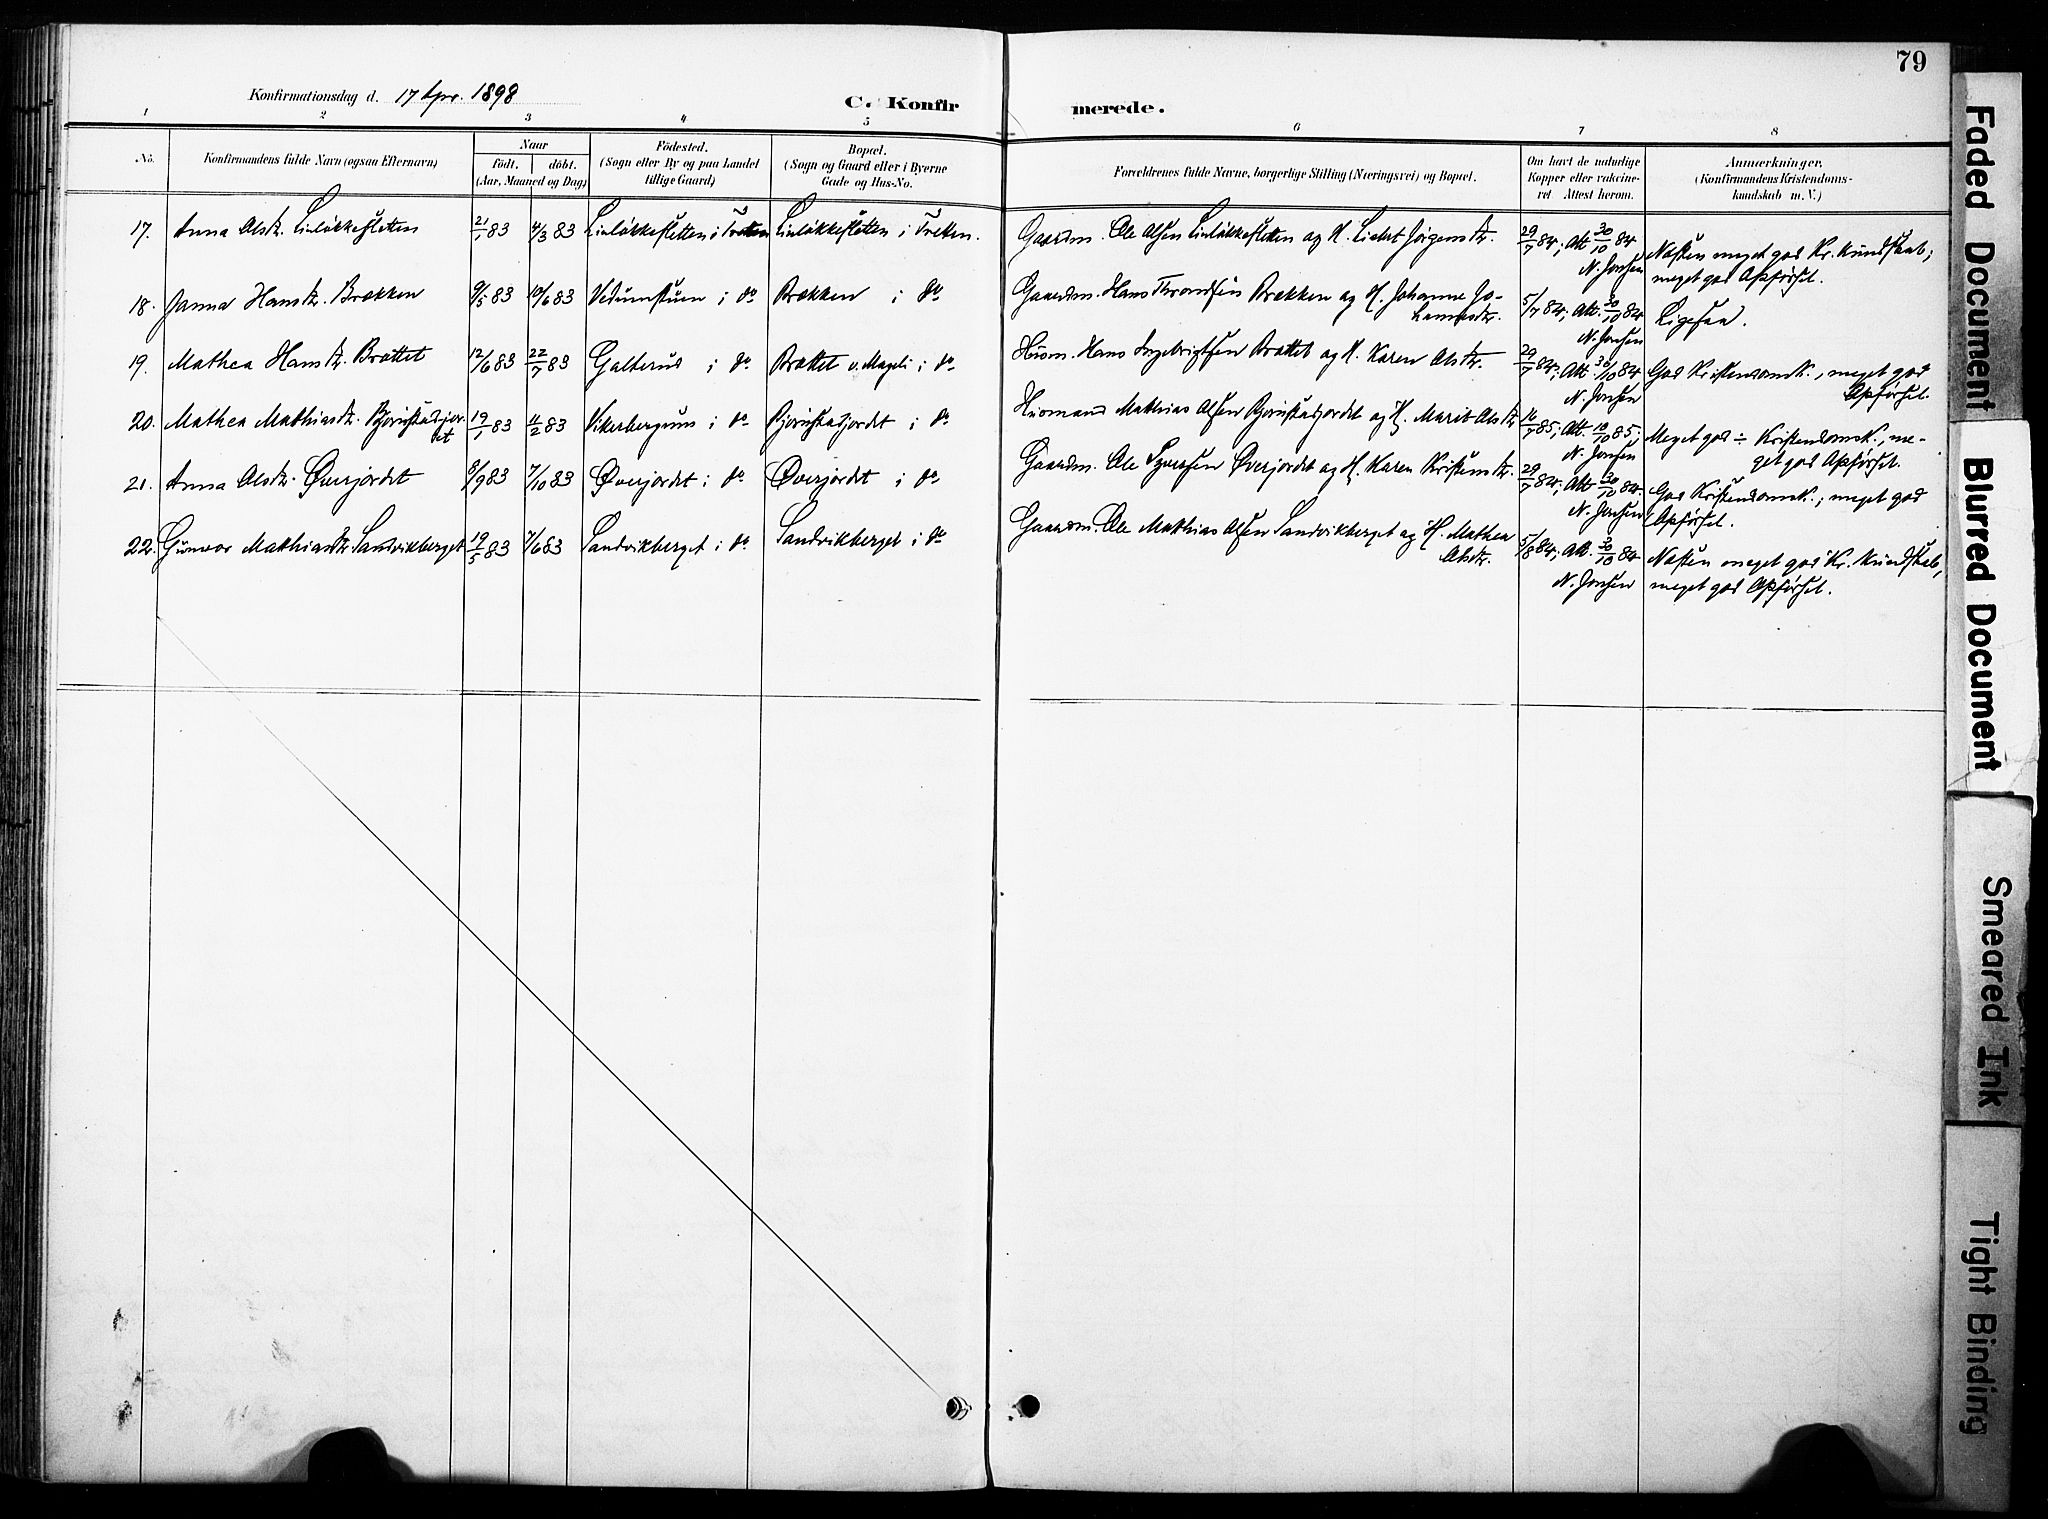 79
Konfirmationsdag d. 17 Apr. 1898
C. Konfirmerede.
1 2 3 4 5 6 7 8
No.
Konfirmandens fulde Navn (ogsaa Efternavn)
Naar
födt. döbt.
(Aar, Maaned og Dag)
Födested.
(Sogn eller By og paa Landet
tillige Gaard)
Bopæl.
(Sogn og Gaard eller i Byerne
Gade og Hus-No.
Forældrenes fulde Navne, borgerlige Stilling (Næringsvei) og Bopæl.
Om havt de naturlige
Kopper eller vaccine-
ret Attest herom.
Anmærkninger.
(Konfirmandens Kristendoms-
kundskab m. V.)
17. Anna Olsdtr. Linløkkesletten 21/1 83 4/3 83 Linløkkesletten i Tretten Linløkkesletten i Tretten. Gaardm. Ole Olsen Linløkkesletten og H. Jörgensdtr. 29/7 84; Att. 30/10 84 Næsten meget god Kr. kundskab;
N. Jonsen meget god Opførsel.
18. Janna Hansdtr. Brækken 9/5 83 10/6 83 i do Brækken i do Gaardm. Hans Throndsen Brækken og H. Johanne Jo-
hannesdtr. 5/7 84; Att. 30/10 84 Ligesaa.
N. Jonsen
19. Mathea Hansdtr. Bråttet 12/6 83 22/7 83 Galterud i do Bråttet v. Mageli i do Husm. Hans Ingebrigtsen Bråttet og H. Karen Olsdtr. 29/7 84; Att. 30/10 84 God Kristendomsk., meget god
N. Jonsen Opførsel.
20. Mathea Mathiasdtr. Bjørnstadjor-
det 19/1 83 11/2 83 Vikerbergum i do Bjørnstadjordet i do Husmand Mathias Olsen Bjørnstadjordet og H. Marit Olsdtr 16/7 85; Att. 10/10 85; Meget god ÷ Kristendomsk., me-
N. Jonsen get god Opførsel.
21. Anna Olsdtr. Øverjordet 8/9 83 7/10 83 Øverjordet i do Øverjordet i do Gaardm. Ole Syversen Øverjordet og H. Karen Kristensdtr. 29/7 84; Att. 30/10 84. God Kristendomsk.; meget god
N. Jonsen Opførsel.
22. Gunvor Mathiasdtr Sandvikberget 19/5 83 7/6 83 Sandvikberget i do Sandvikberget i do Gaardm. Ole Mathias Olsen Sandvikberget og H. Mathea
Olsdtr. 5/8 84; Att. 30/10 84 Næsten meget god Kr. kundskab,
N. Jonsen meget god Opførsel.
Faded Document
Blurred Document
Smeared Ink
Tight Binding